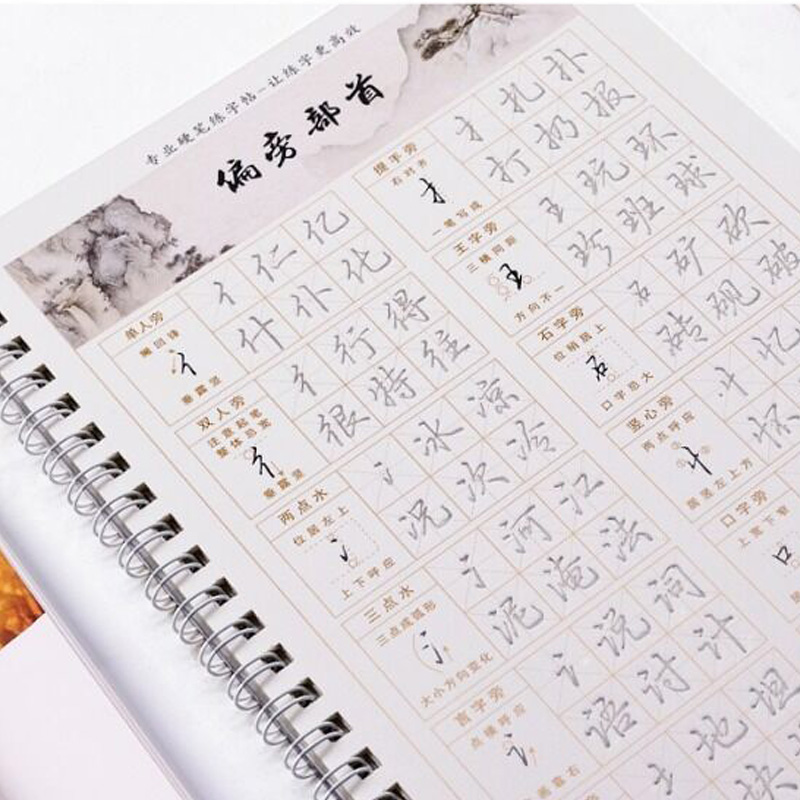 专业硬笔练字帖－让练字更高效
偏旁部首
单人旁
撇回锋
亻
垂露竖
亻 仁 亿
什 仆 化
双人旁
注意起笔
整体忌宽
彳
垂露竖
彳 行 得
很 特 往
两点水
位居左上
冫
上下呼应
冫 冰 凉
况 次 冷
三点水
三点成弧形
氵
大小方向变化
氵 河 江
泥 淹 法
言字旁
点横呼应
讠
讠 说 词
语 讨 计
地 坦
块
提手旁
右对齐
扌
一笔写成
扌 扎 扑
打 扔 报
王字旁
三横间距
王
方向不一
王 玩 环
珍 班 球
石字旁
位稍居上
石
口字忌大
石 矿 砍
砖 砚 破
竖心旁
两点呼应
忄
居竖左上方
忄 忆
怀
口字旁
上宽下窄
口